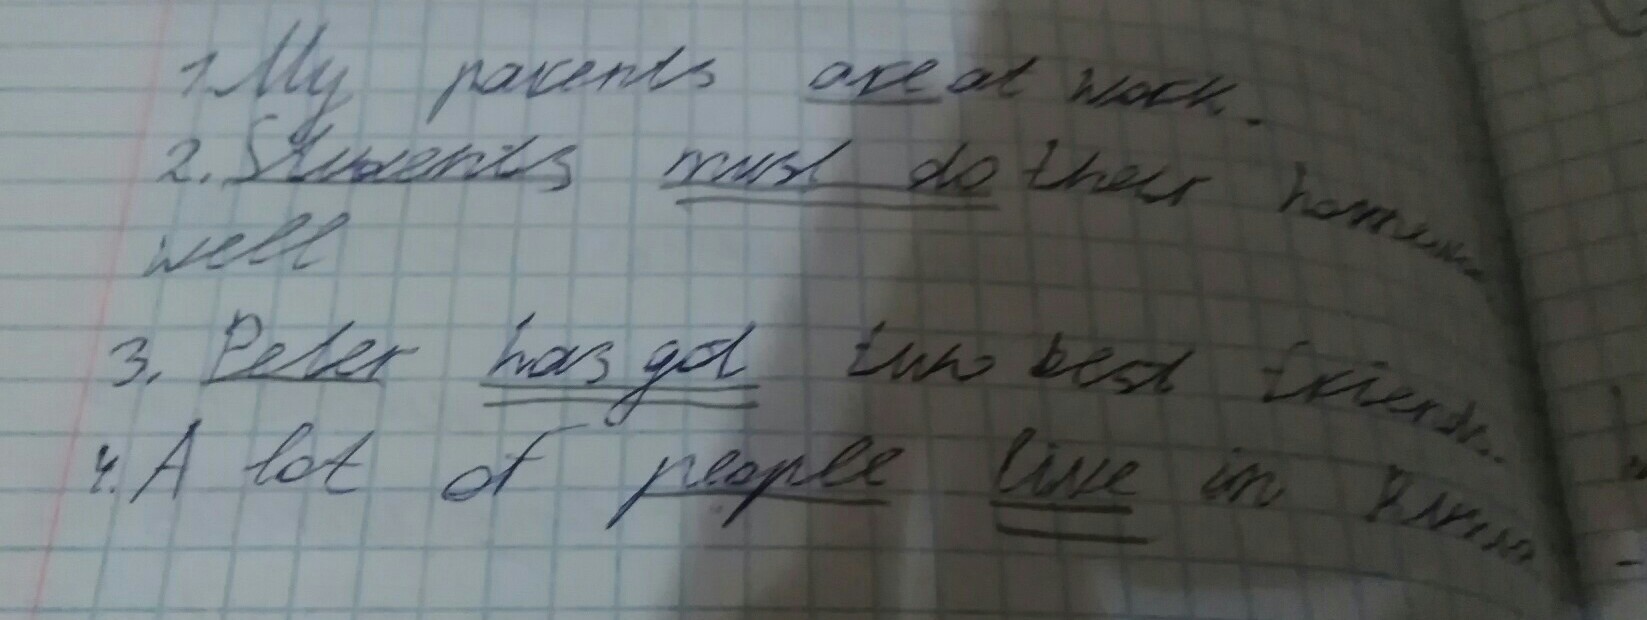 1. My parents are at work.
2. Students must do their homework
well
3. Peter has got two best friends.
4. A lot of people live in